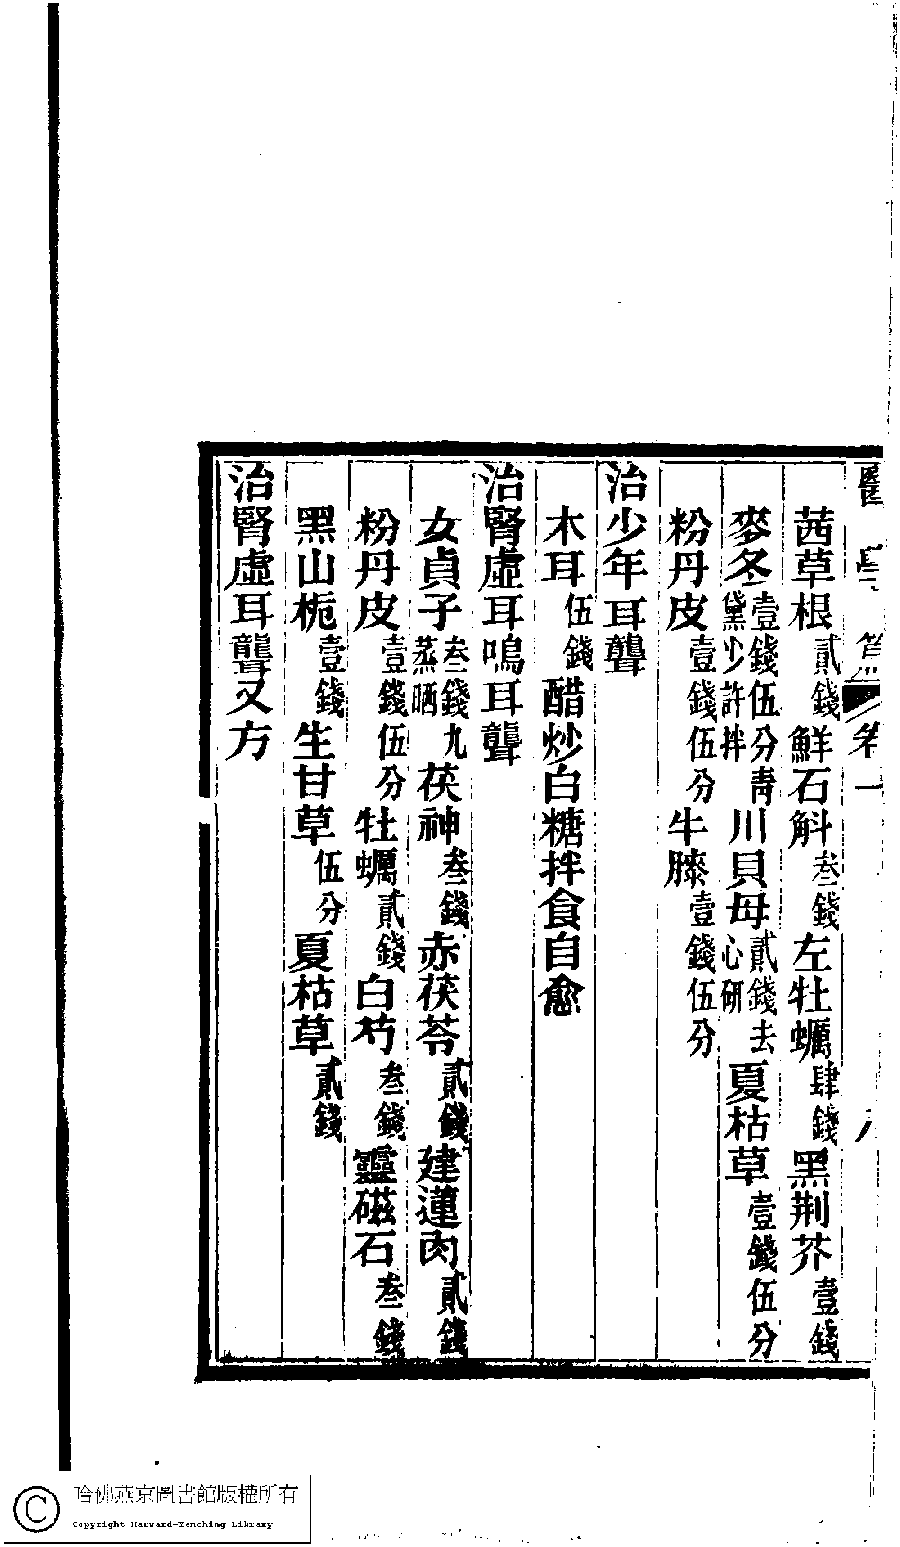 茜草根貳錢鮮石斛叁錢左牡蠣肆錢黑荆芥壹錢
麥冬壹錢伍分靑黛少許拌川貝母貳錢去心研夏枯草壹錢伍分
粉丹皮壹錢伍分牛膝壹錢伍分
治少年耳聾
木耳伍錢醋炒白糖拌食自愈
治腎虛耳鳴耳聾
女貞子叁錢九蒸晒茯神叁錢赤茯苓貳錢建蓮肉貳錢
粉丹皮壹錢伍分牡蠣貳錢白芍叁錢靈磁石叁錢
黑山梔壹錢生甘草伍分夏枯草貳錢
治腎虛耳聾又方
卷一
哈佛燕京圖書館版權所有
Copyright Harvard-Yenching Library